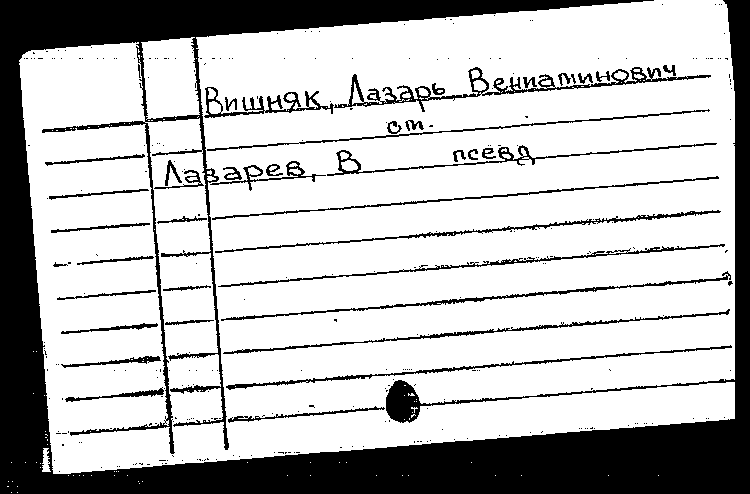 Вишняк, Лазарь Вениаминович
см.
Лазарев, В псевд